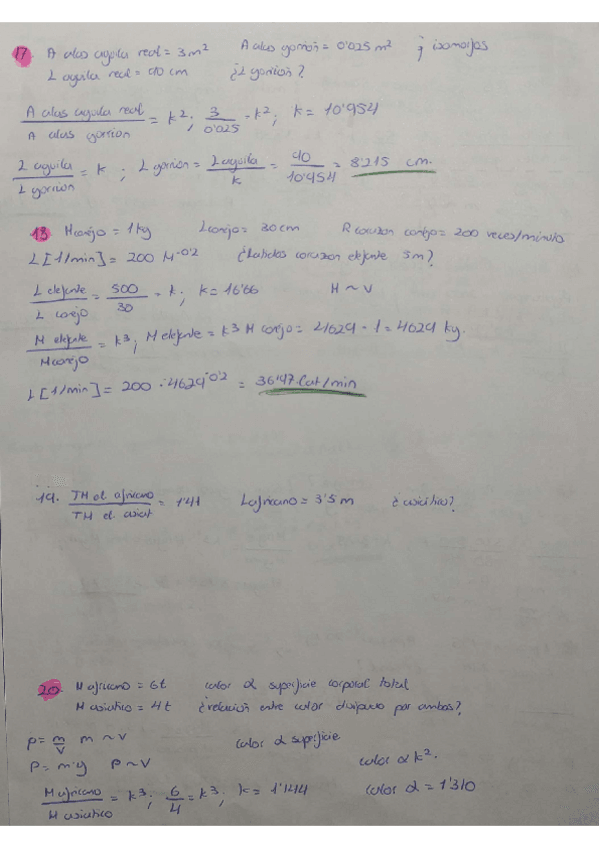 17 A alas aguila real = 3m² A alas gorrion = 0'025 m² ¿ isomorfos
L aguila real = 90 cm ¿L gorrion?
A alas aguila real / A alas gorrion = k²; 3 / 0'025 = k²; k = 10'954
L aguila / L gorrion = k ; L gorrion = L aguila / k = 90 / 10'954 = 8'215 cm.
18 Mconejo = 1kg Lconejo = 30cm R corazon conejo = 200 veces/minuto
L [1/min] = 200 M^-0'2 ¿latidos corazon elefante 5m?
L elefante / L conejo = 500 / 30 = k; k = 16'66 M ~ V
M elefante / Mconejo = k³; M elefante = k³ M conejo = 4629 · 1 = 4629 kg.
L [1/min] = 200 · 4629^-0'2 = 36'97 lat/min
19. TM el africano / TM el. asiat = 1'41 Lafricano = 3'5 m ¿asiatico?
20 M africano = 6t calor α superficie corporal total
M asiatico = 4t ¿relacion entre calor disipado por ambos?
p = m/V m ~ V calor α superficie
P = m·g P ~ V calor α k².
M africano / M asiatico = k³; 6/4 = k³; k = 1'144 calor α = 1'310